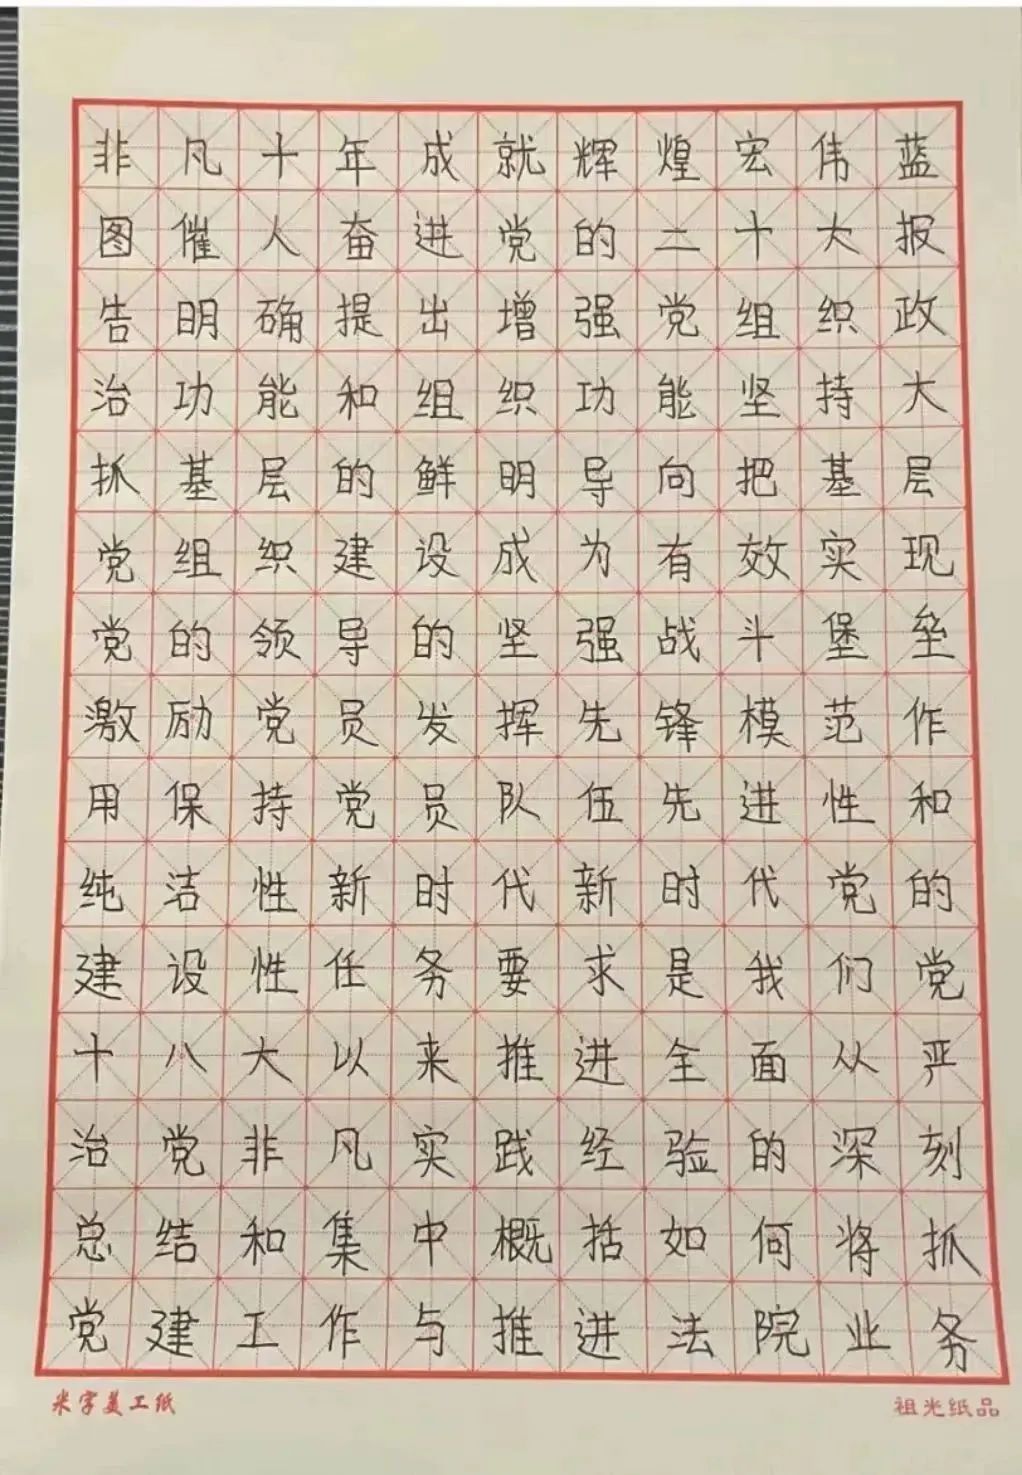 非凡十年成就辉煌宏伟蓝
图催人奋进党的二十大报
告明确提出增强党组织政
治功能和组织功能坚持大
抓基层的鲜明导向把基层
党组织建设成为有效实现
党的领导的坚强战斗堡垒
激励党员发挥先锋模范作
用保持党员队伍先进性和
纯洁性新时代新时代党的
建设性任务要求是我们党
十八大以来推进全面从严
治党非凡实践经验的深刻
总结和集中概括如何将抓
党建工作与推进法院业务
米字美工纸
祖光纸品